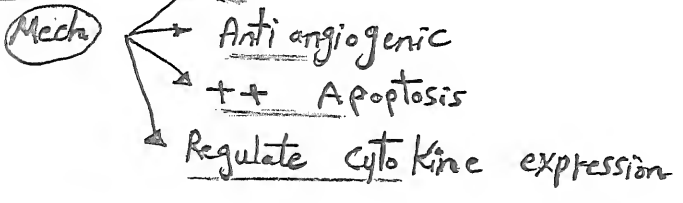 Mech
Anti angiogenic
++ Apoptosis
Regulate cytokine expression